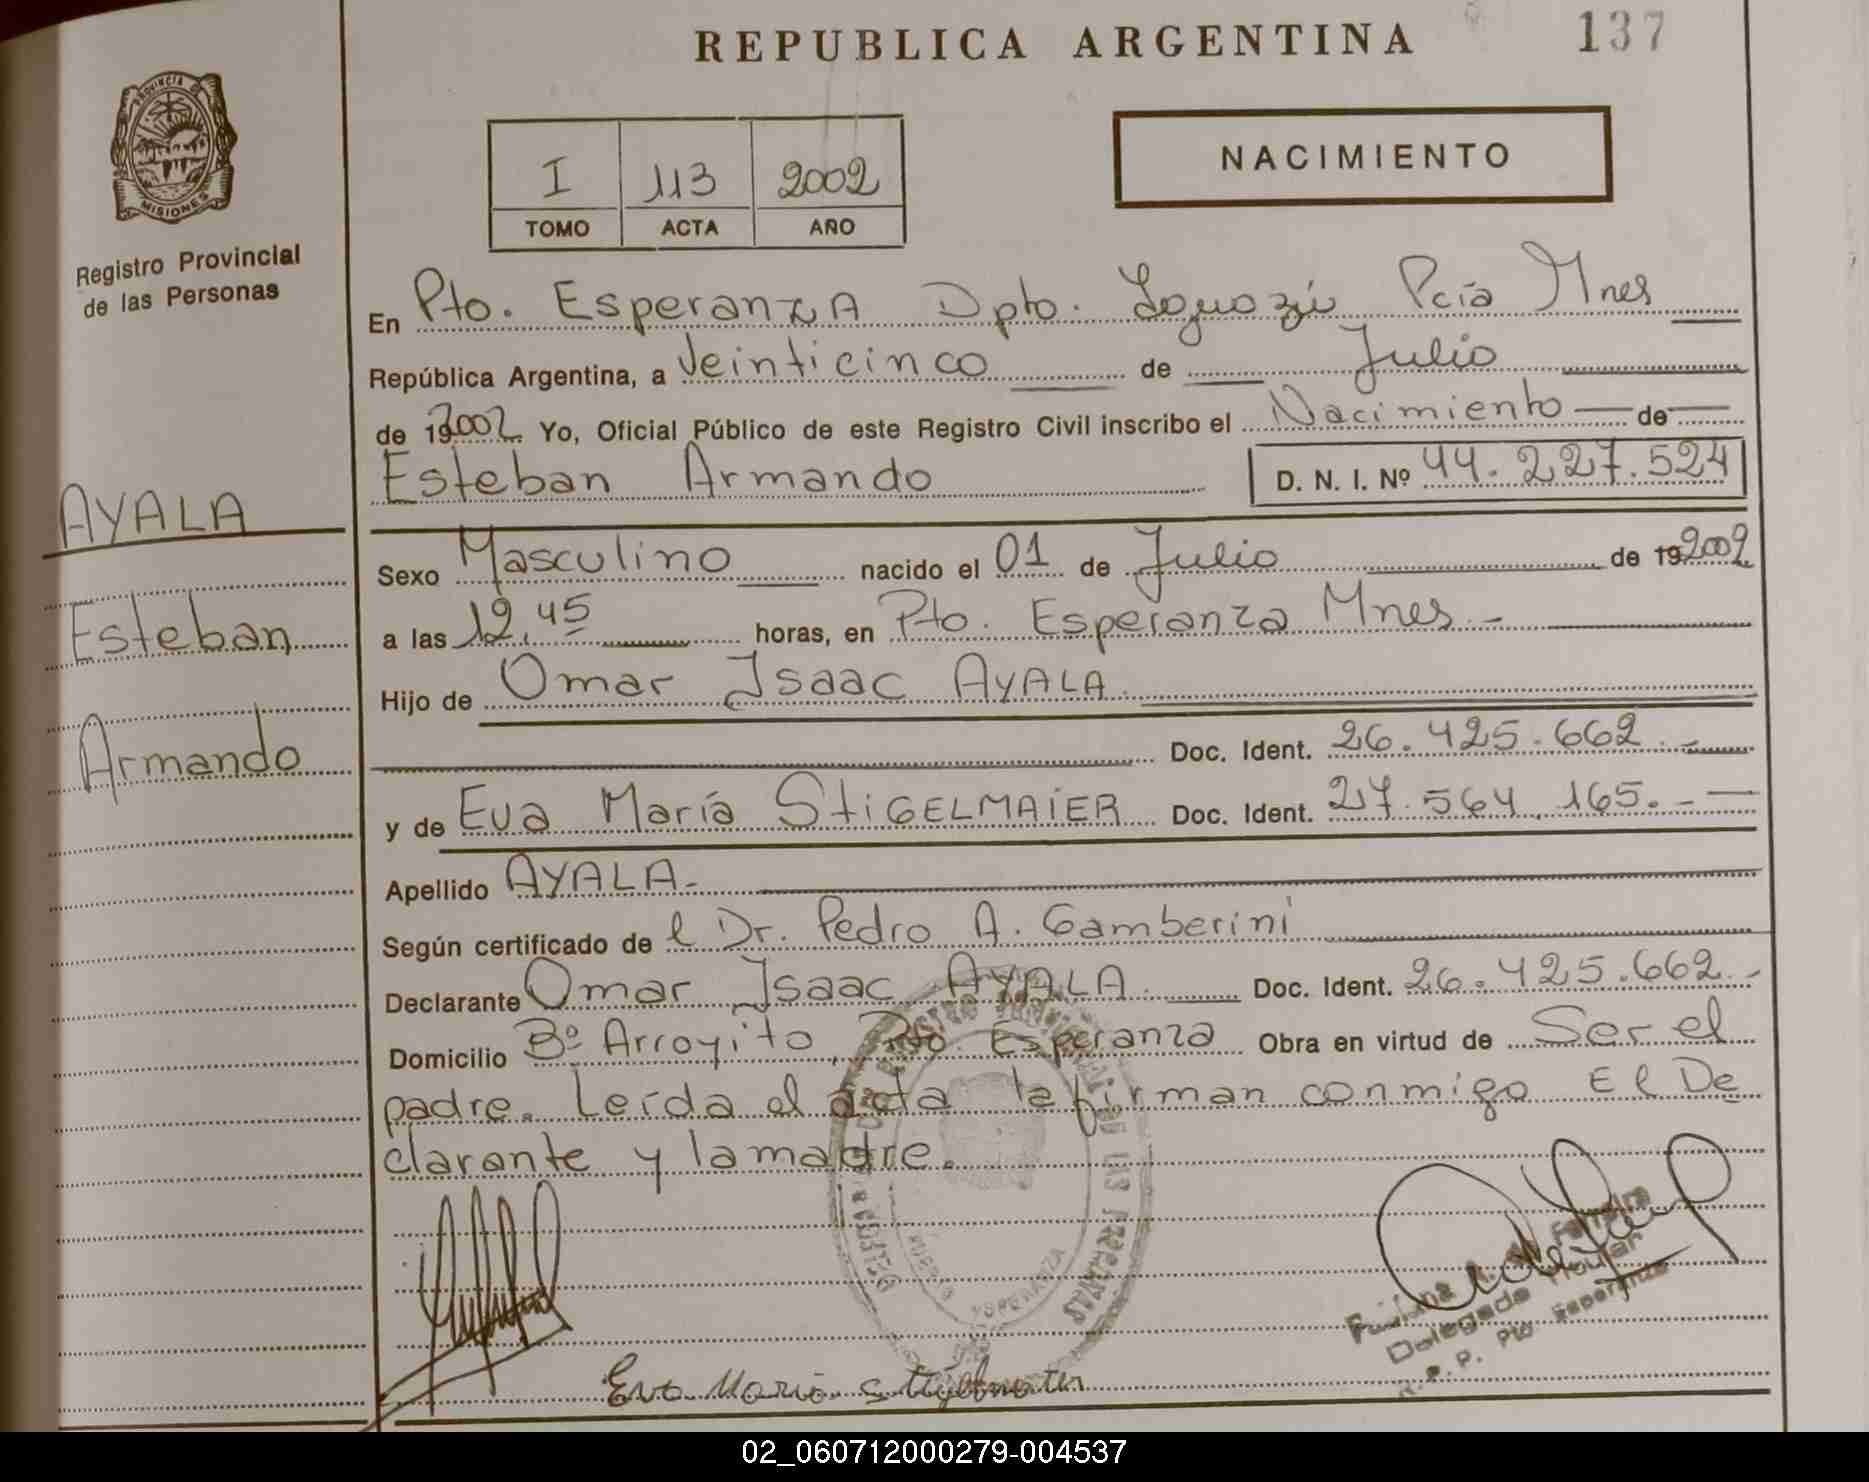 REPUBLICA ARGENTINA
137
PROVINCIA DE
MISIONES
Registro Provincial
de las Personas
I 113 2002
TOMO ACTA AÑO
NACIMIENTO
En Pto. Esperanza Dpto. Iguazú Pcia Mnes
República Argentina, a Veinticinco de Julio
de 19 2002 Yo, Oficial Público de este Registro Civil inscribo el Nacimiento de
Esteban Armando D. N. I. Nº 44.227.524
AYALA
Esteban
Armando
Sexo Masculino nacido el 01 de Julio de 19 2002
a las 12,45 horas, en Pto. Esperanza Mnes.-
Hijo de Omar Isaac AYALA
Doc. Ident. 26.425.662.-
y de Eva María StiGELMAiER Doc. Ident. 27.564.165.-
Apellido AYALA.-
Según certificado de l Dr. Pedro A. Gamberini
Declarante Omar Isaac AYALA. Doc. Ident. 26.425.662.-
Domicilio Bº Arroyito, Pto Esperanza Obra en virtud de Ser el
padre. Leída el acta la firman conmigo El De
clarante y la madre.
DE LAS PERSONAS
PUERTO ESPERANZA
Delegada Titular
R. P. P. Pto Esperanza
Eva Maria Stigelmaier
02_060712000279-004537